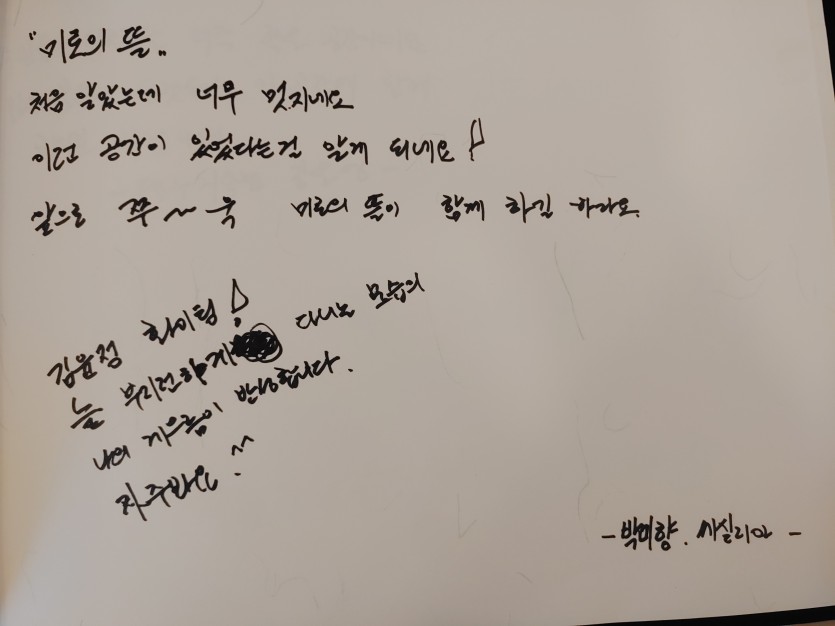 "미로의 뜰"
처음 알았는데 너무 멋지네요
이런 공간이 있었다는걸 알게 되네요!
앞으로 쭈~욱 미로의 뜰이 함께 하길 바라요.
김윤정 화이팅!
늘 부지런하게 다니는 모습의
나의 게으름이 반성됩니다.
자주봐요 ^^
- 박미향. 세실리아 -